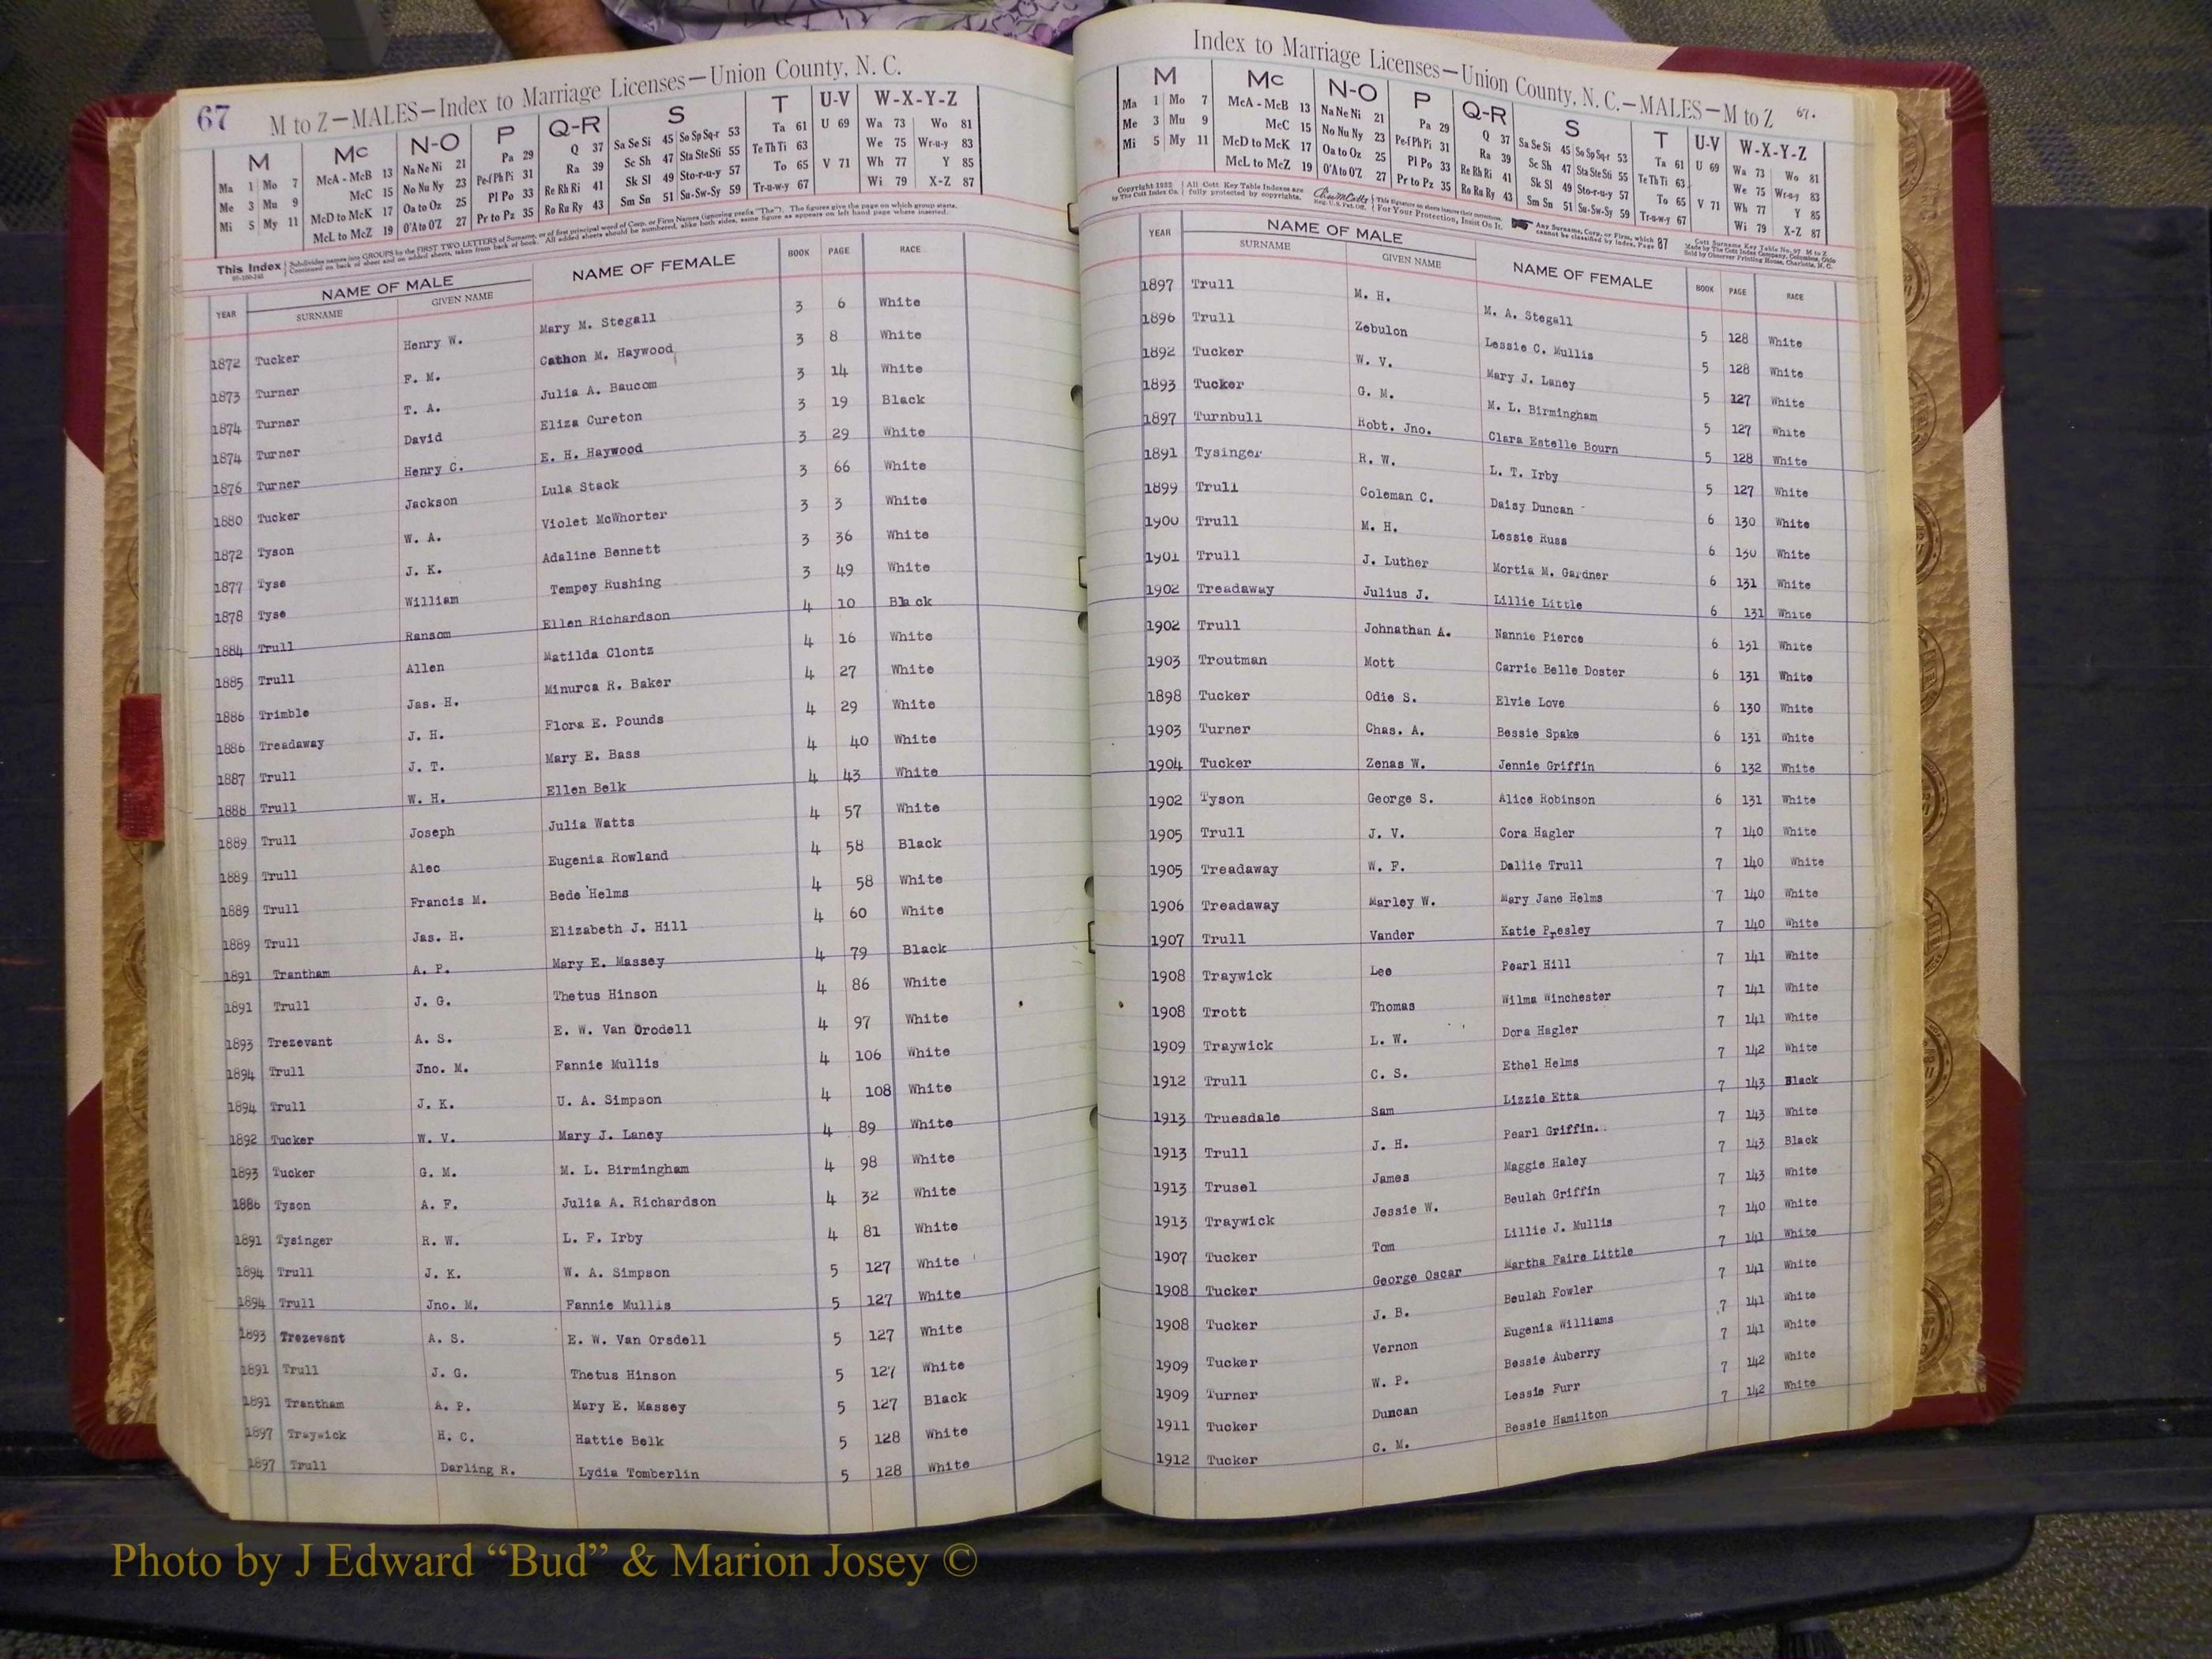 67
M to Z—MALES—Index to Marriage Licenses—Union County, N. C.
M Mc N-O P Q-R S T U-V W-X-Y-Z
Ma 1 Mo 7 McA - McB 13 Na Ne Ni 21 Pa 29 Q 37 Sa Se Si 45 So Sp Sq-r 53 Ta 61 U 69 Wa 73 Wo 81
Me 3 Mu 9 McC 15 No Nu Ny 23 Pe-f Ph Pi 31 Ra 39 Sc Sh 47 Sta Ste Sti 55 Te Th Ti 63 We 75 Wr-u-y 83
Mi 5 My 11 McD to McK 17 Oa to Oz 25 Pl Po 33 Re Rh Ri 41 Sk Sl 49 Sto-r-u-y 57 To 65 V 71 Wh 77 Y 85
McL to McZ 19 O'A to O'Z 27 Pr to Pz 35 Ro Ru Ry 43 Sm Sn 51 Su-Sw-Sy 59 Tr-u-w-y 67 Wi 79 X-Z 87
This Index Subdivides names into GROUPS by the FIRST TWO LETTERS of Surname, or of first principal word of Corp. or Firm Names (ignoring prefix "The"). The figures give the page on which group starts.
Continued on back of sheet and on added sheets, taken from back of book. All added sheets should be numbered, alike both sides, same figure as appears on left hand page where inserted.
YEAR NAME OF MALE NAME OF FEMALE BOOK PAGE RACE
SURNAME GIVEN NAME
1872 Tucker Henry W. Mary M. Stegall 3 6 White
1873 Turner F. M. Cathon M. Haywood 3 8 White
1874 Turner T. A. Julia A. Baucom 3 14 White
1874 Turner David Eliza Cureton 3 19 Black
1876 Turner Henry C. E. H. Haywood 3 29 White
1880 Tucker Jackson Lula Stack 3 66 White
1872 Tyson W. A. Violet McWhorter 3 3 White
1877 Tyse J. K. Adaline Bennett 3 36 White
1878 Tyse William Tempey Rushing 3 49 White
1884 Trull Ransom Ellen Richardson 4 10 Black
1885 Trull Allen Matilda Clontz 4 16 White
1886 Trimble Jas. H. Minurca R. Baker 4 27 White
1886 Treadaway J. H. Flora E. Pounds 4 29 White
1887 Trull J. T. Mary E. Bass 4 40 White
1888 Trull W. H. Ellen Belk 4 43 White
1889 Trull Joseph Julia Watts 4 57 White
1889 Trull Alec Eugenia Rowland 4 58 Black
1889 Trull Francis M. Bede Helms 4 58 White
1889 Trull Jas. H. Elizabeth J. Hill 4 60 White
1891 Trantham A. P. Mary E. Massey 4 79 Black
1891 Trull J. G. Thetus Hinson 4 86 White
1893 Trezevant A. S. E. W. Van Orodell 4 97 White
1894 Trull Jno. M. Fannie Mullis 4 106 White
1894 Trull J. K. U. A. Simpson 4 108 White
1892 Tucker W. V. Mary J. Laney 4 89 White
1893 Tucker G. M. M. L. Birmingham 4 98 White
1886 Tyson A. F. Julia A. Richardson 4 32 White
1891 Tysinger R. W. L. F. Irby 4 81 White
1894 Trull J. K. W. A. Simpson 5 127 White
1894 Trull Jno. M. Fannie Mullis 5 127 White
1893 Trezevant A. S. E. W. Van Orsdell 5 127 White
1891 Trull J. G. Thetus Hinson 5 127 White
1891 Trantham A. P. Mary E. Massey 5 127 Black
1897 Traywick H. C. Hattie Belk 5 128 White
1897 Trull Darling R. Lydia Tomberlin 5 128 White
Index to Marriage Licenses—Union County, N. C.—MALES—M to Z 67.
M Mc N-O P Q-R S T U-V W-X-Y-Z
Ma 1 Mo 7 McA - McB 13 Na Ne Ni 21 Pa 29 Q 37 Sa Se Si 45 So Sp Sq-r 53 Ta 61 U 69 Wa 73 Wo 81
Me 3 Mu 9 McC 15 No Nu Ny 23 Pe-f Ph Pi 31 Ra 39 Sc Sh 47 Sta Ste Sti 55 Te Th Ti 63 We 75 Wr-u-y 83
Mi 5 My 11 McD to McK 17 Oa to Oz 25 Pl Po 33 Re Rh Ri 41 Sk Sl 49 Sto-r-u-y 57 To 65 V 71 Wh 77 Y 85
McL to McZ 19 O'A to O'Z 27 Pr to Pz 35 Ro Ru Ry 43 Sm Sn 51 Su-Sw-Sy 59 Tr-u-w-y 67 Wi 79 X-Z 87
Copyright 1932 All Cott Key Table Indexes are For Your Protection, Insist On It. Any Surname, Corp. or Firm, which 87 Cott Surname Key Table No. 97, M to Z
by The Cott Index Co. fully protected by copyrights. cannot be classified by Index, Page Made by The Cott Index Company, Columbus, Ohio
Sold by Observer Printing House, Charlotte, N. C.
YEAR NAME OF MALE NAME OF FEMALE BOOK PAGE RACE
SURNAME GIVEN NAME
1897 Trull M. H. M. A. Stegall 5 128 White
1896 Trull Zebulon Lessie C. Mullis 5 128 White
1892 Tucker W. V. Mary J. Laney 5 127 White
1893 Tucker G. M. M. L. Birmingham 5 127 White
1897 Turnbull Robt. Jno. Clara Estelle Bourn 5 128 White
1891 Tysinger R. W. L. T. Irby 5 127 White
1899 Trull Coleman C. Daisy Duncan 6 130 White
1900 Trull M. H. Lessie Russ 6 130 White
1901 Trull J. Luther Mortia M. Gardner 6 131 White
1902 Treadaway Julius J. Lillie Little 6 131 White
1902 Trull Johnathan A. Nannie Pierce 6 131 White
1903 Troutman Mott Carrie Belle Doster 6 131 White
1898 Tucker Odie S. Elvie Love 6 130 White
1903 Turner Chas. A. Bessie Spake 6 131 White
1904 Tucker Zenas W. Jennie Griffin 6 132 White
1902 Tyson George S. Alice Robinson 6 131 White
1905 Trull J. V. Cora Hagler 7 140 White
1905 Treadaway W. F. Dallie Trull 7 140 White
1906 Treadaway Marley W. Mary Jane Helms 7 140 White
1907 Trull Vander Katie Presley 7 140 White
1908 Traywick Lee Pearl Hill 7 141 White
1908 Trott Thomas Wilma Winchester 7 141 White
1909 Traywick L. W. Dora Hagler 7 141 White
1912 Trull C. S. Ethel Helms 7 142 White
1913 Truesdale Sam Lizzie Etta 7 143 Black
1913 Trull J. H. Pearl Griffin. 7 143 White
1913 Trusel James Maggie Haley 7 143 Black
1913 Traywick Jessie W. Beulah Griffin 7 143 White
1907 Tucker Tom Lillie J. Mullis 7 140 White
1908 Tucker George Oscar Martha Faire Little 7 141 White
1908 Tucker J. B. Beulah Fowler 7 141 White
1909 Tucker Vernon Eugenia Williams 7 141 White
1909 Turner W. P. Bessie Auberry 7 141 White
1911 Tucker Duncan Lessie Furr 7 142 White
1912 Tucker C. M. Bessie Hamilton 7 142 White
Photo by J Edward “Bud” & Marion Josey ©